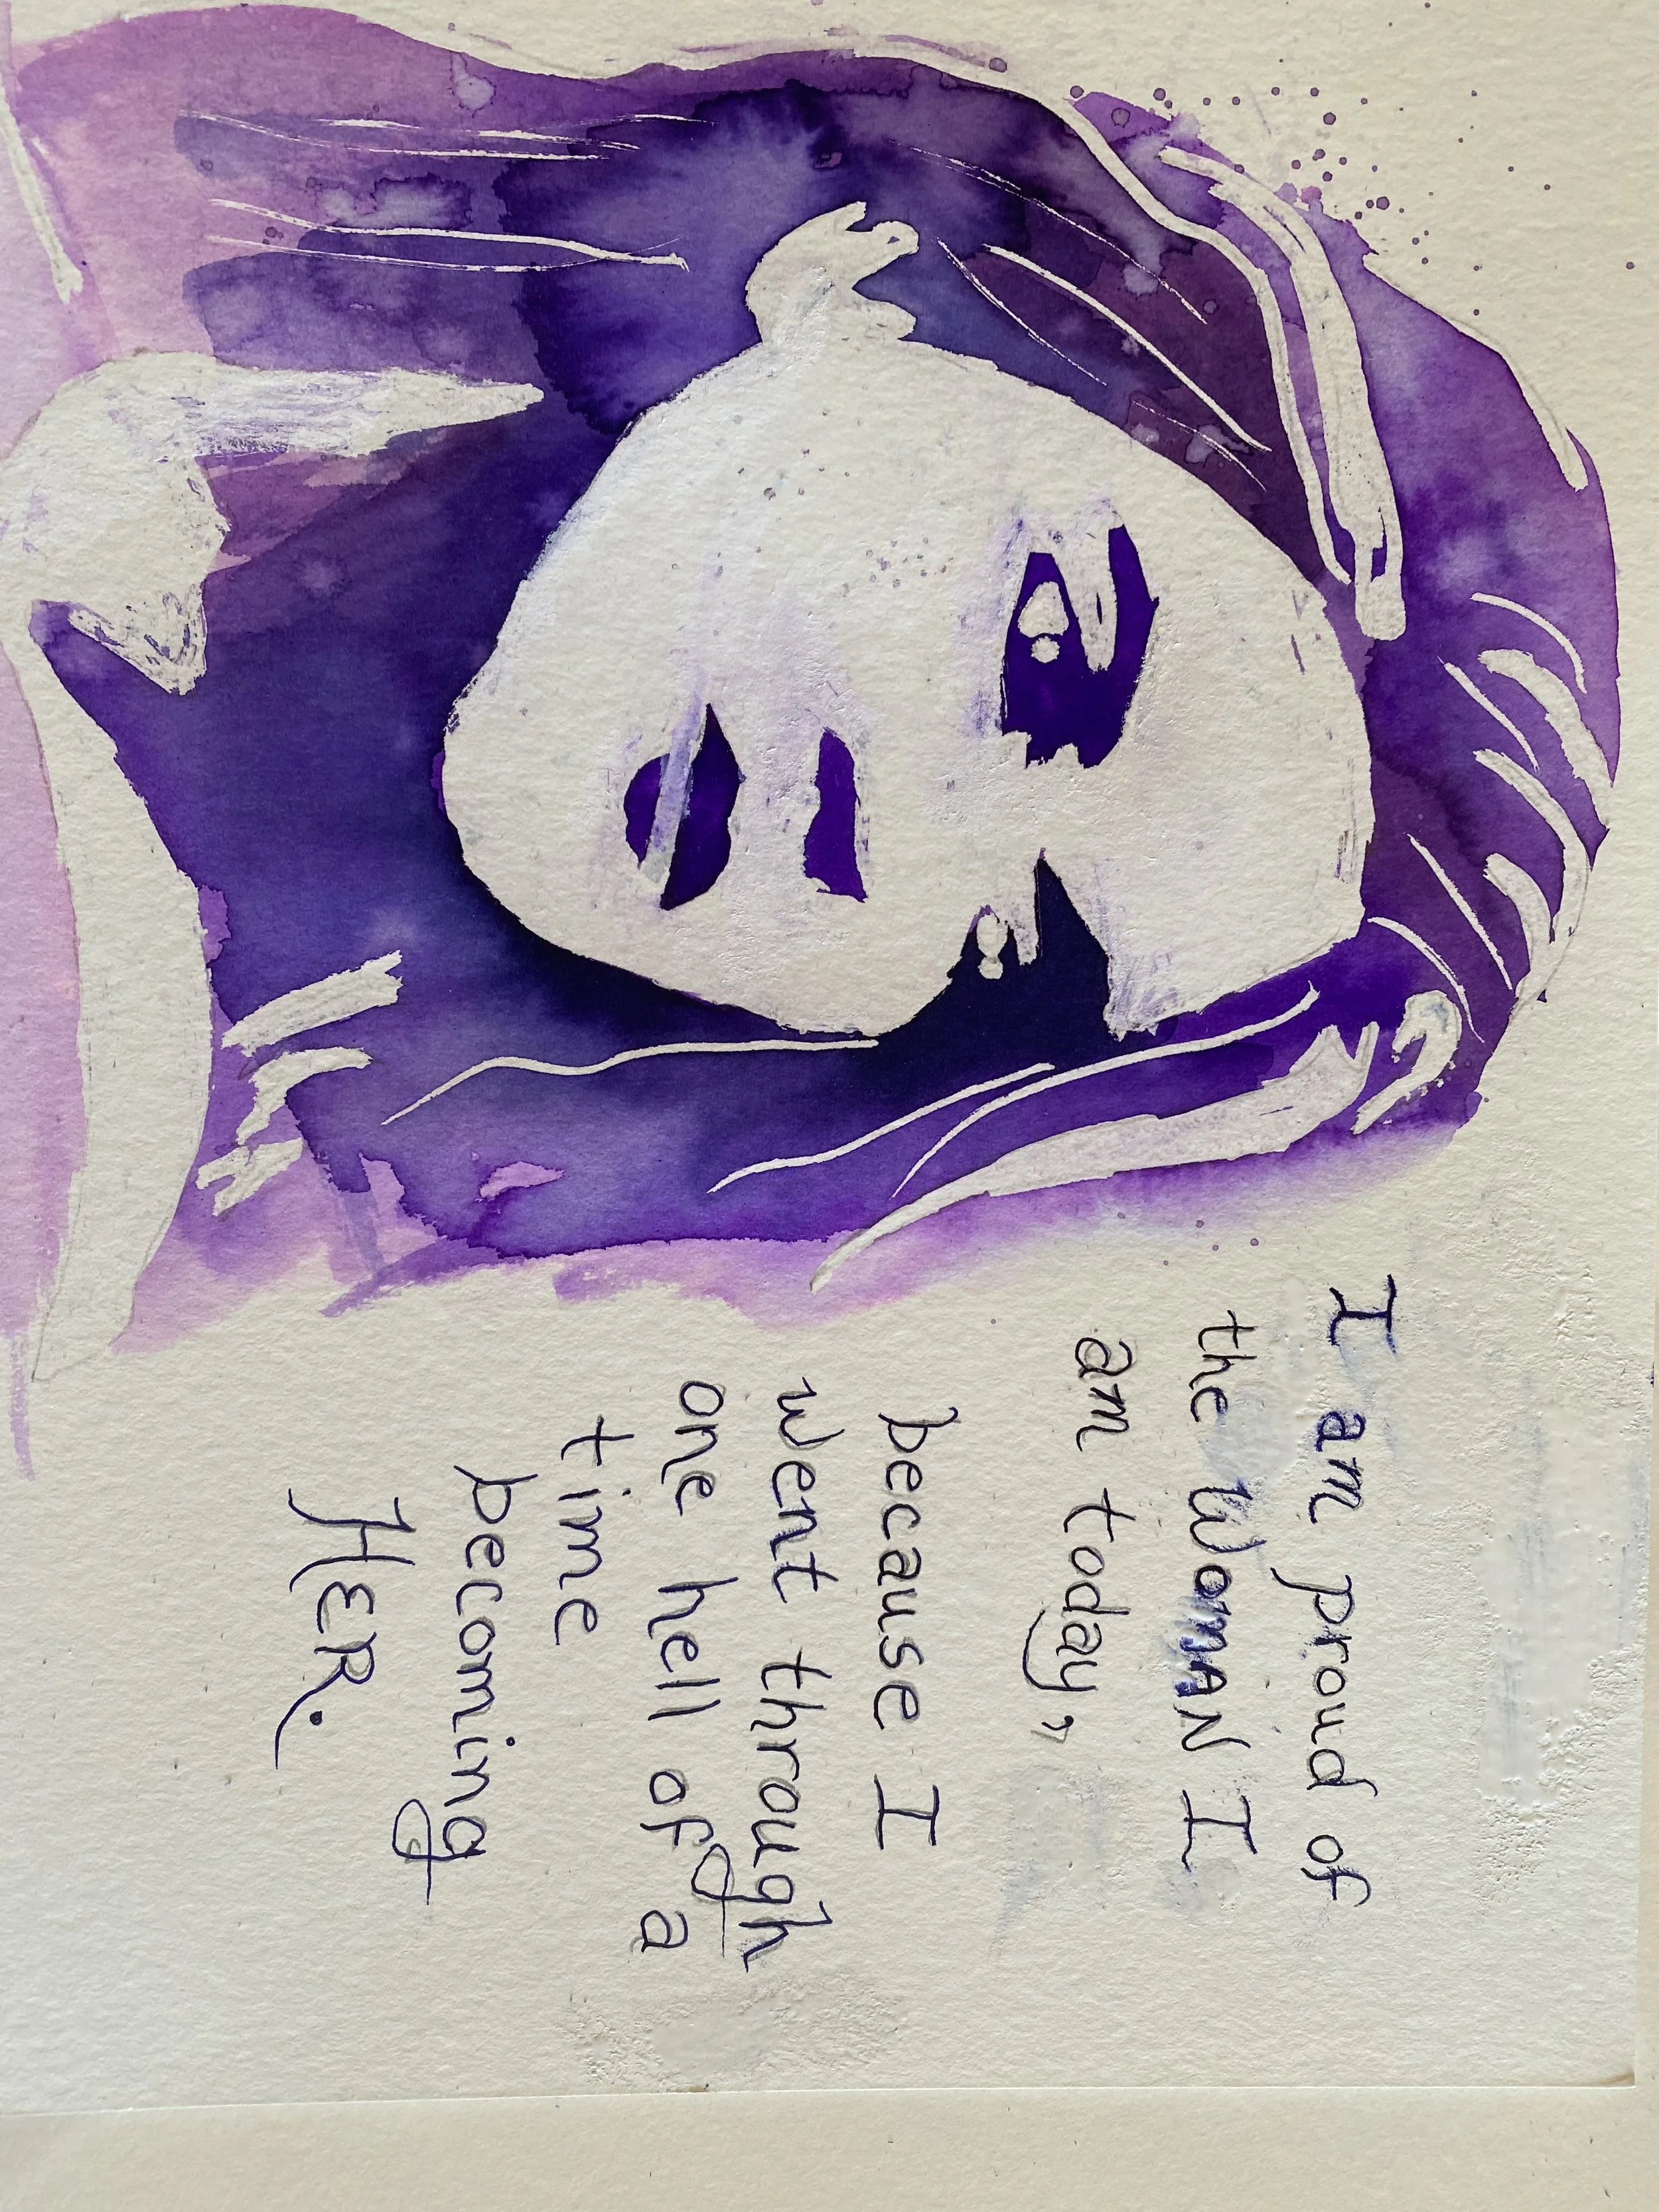 I am proud of
the WomAN I
am today,
because I
went through
one hell of a
time
becoming
HER.